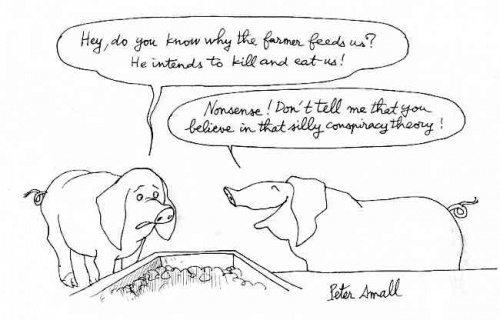 Hey, do you know why the farmer feeds us?
He intends to kill and eat us!
Nonsense! Don't tell me that you
believe in that silly conspiracy theory!
Peter Small